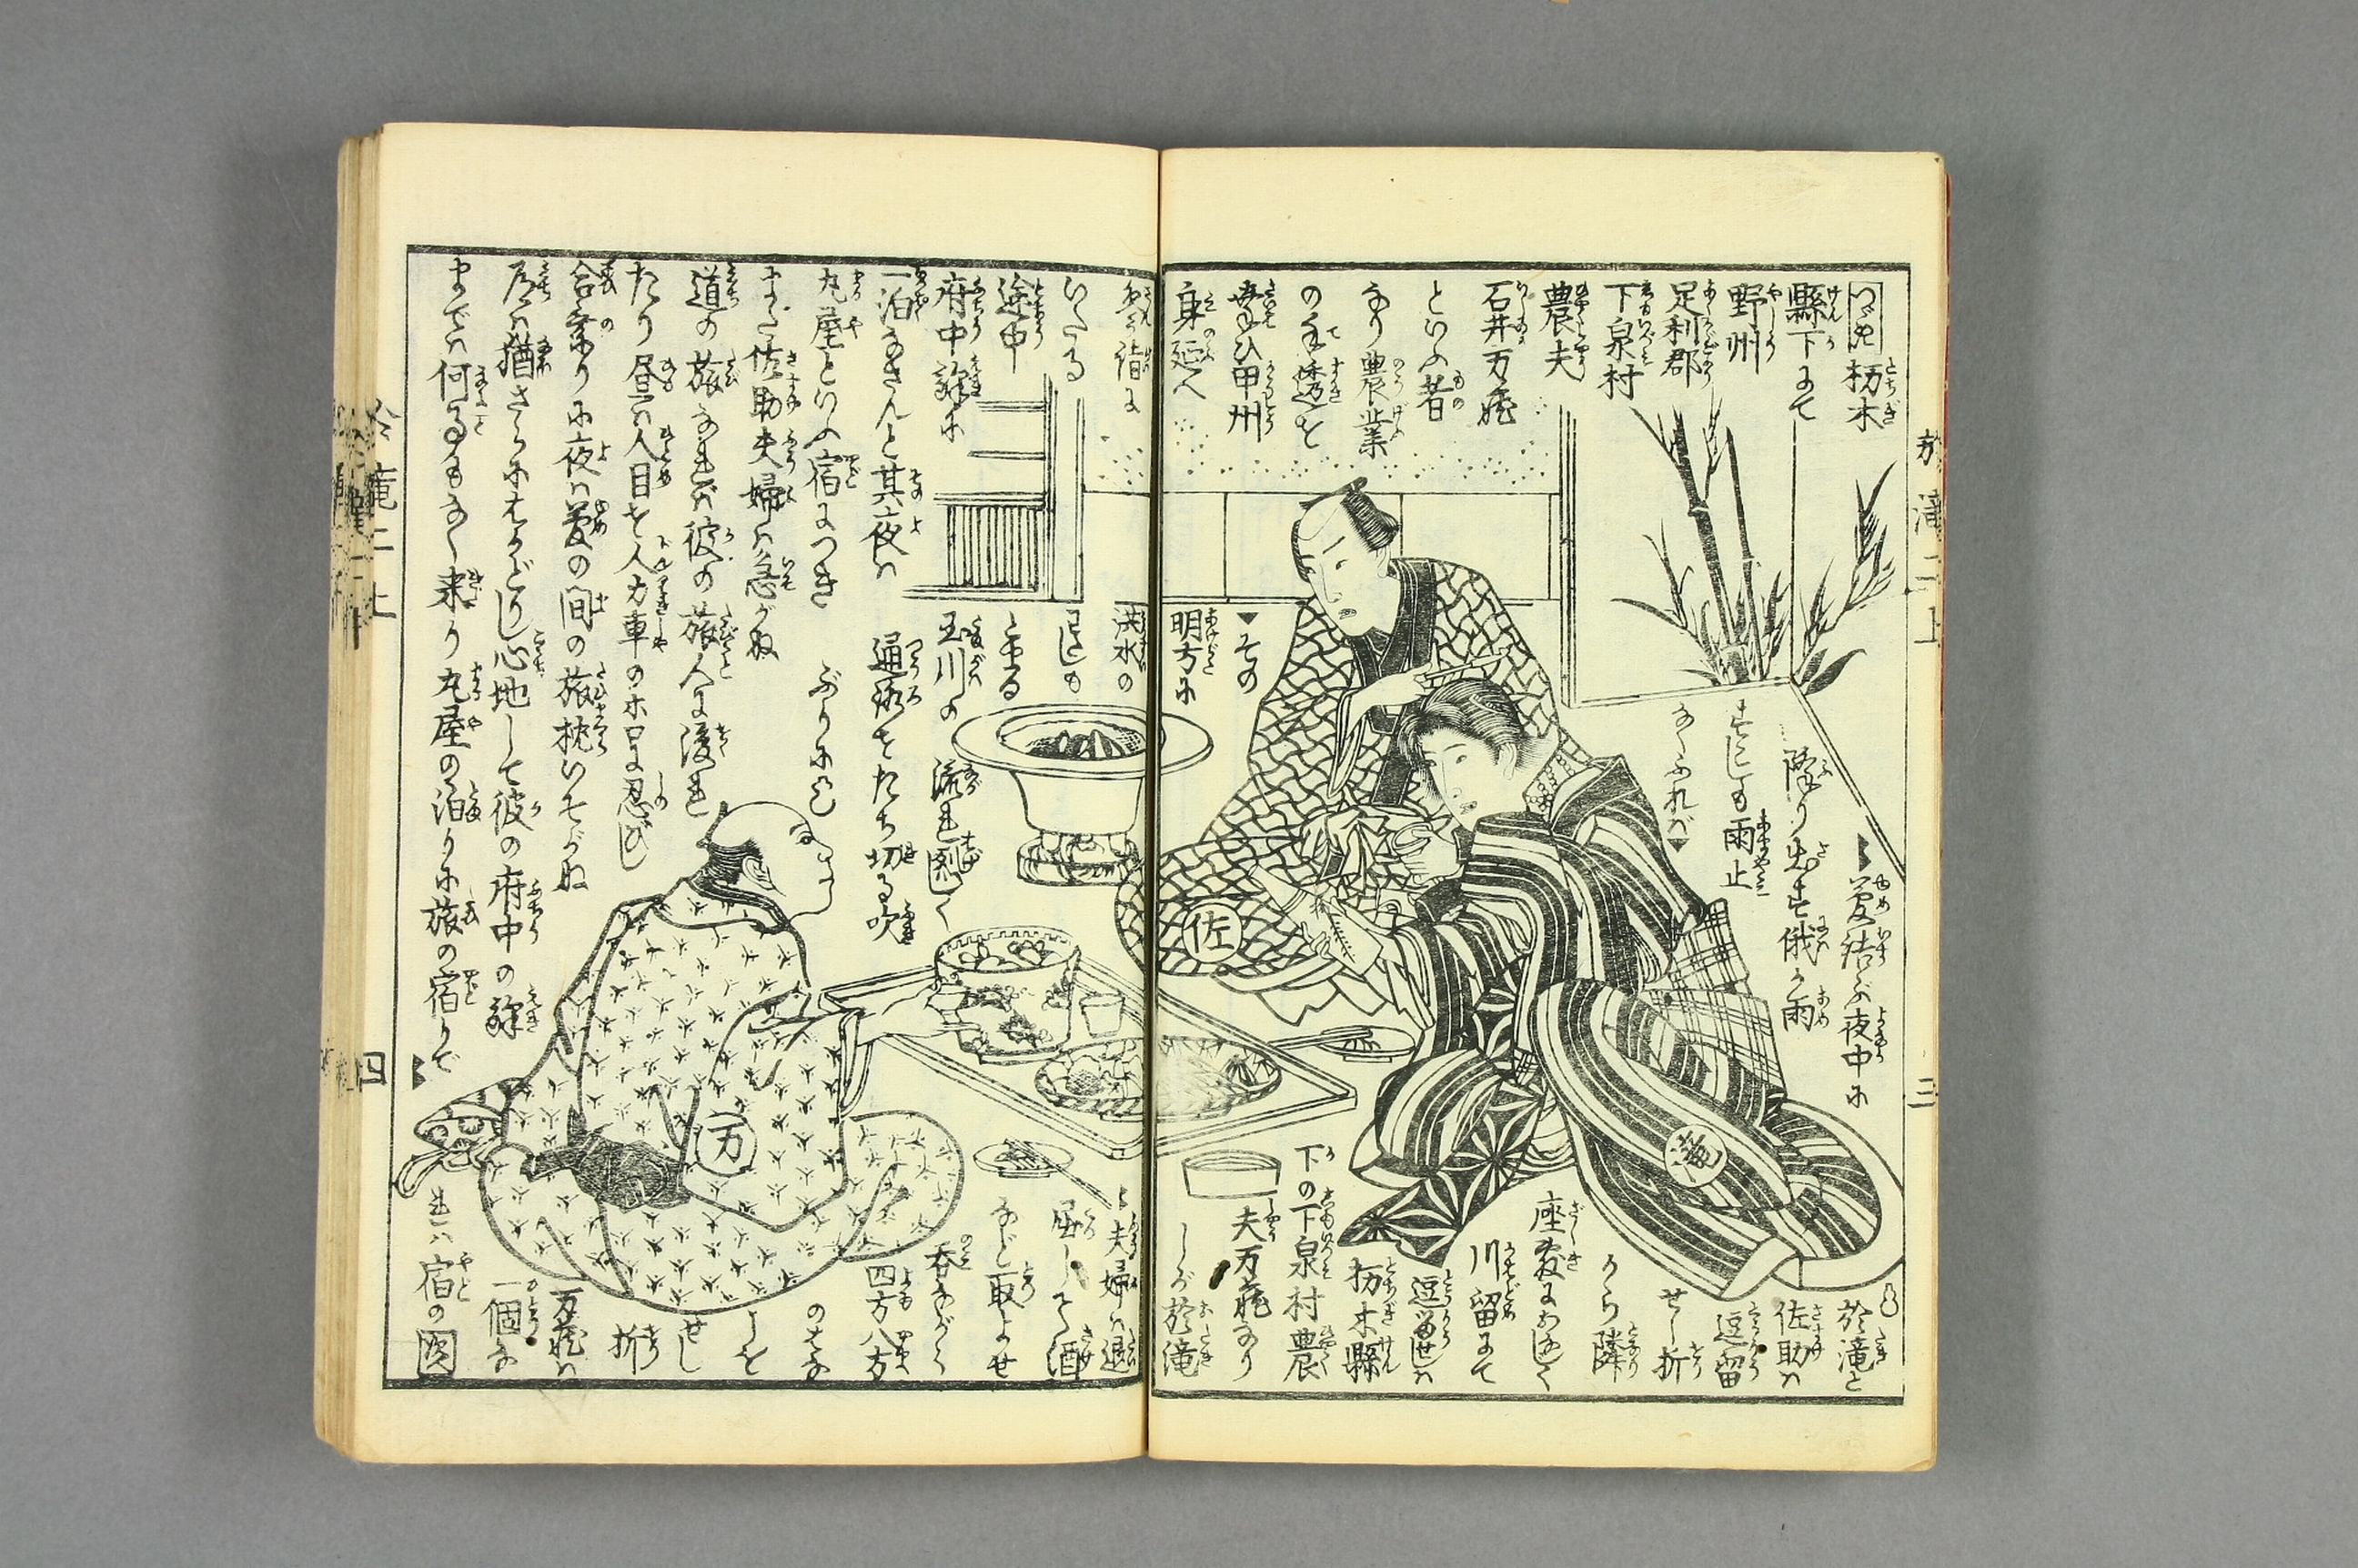 つゞき 栃木
縣下にて
野州
足利郡
下泉村
農夫
石井万蔵
といふ者
なり農業
の手透を
幸ひ甲州
身延へ
参詣に
いたる
途中
府中驛に
一泊なさんと其夜ハ
丸屋といふ宿につき
また佐助夫婦ハ急がぬ
道の旅なれバ彼の旅人に後れ
たり昼ハ人目を人力車のホロに忍びし
合乗りに夜ハ夢の間の旅枕いそがぬ
尽ハ猶さらにもかどりし心地して彼の府中の驛
までハ何事もなく来り丸屋の泊りに旅の宿りで
夢結ぶ夜中に
降り出す俄か雨
すこしも雨止
なかれバ
その
明方に
洪水の
こしも
とまる
玉川の
流れ烈しく
通路をたち切る吹
ぶりに
於滝と
佐助ハ
逗留
せし折
から隣
座敷におなじく
川留にて
逗留せしハ
栃木縣
下の下泉村農
夫万蔵なり
しが於滝
夫婦ハ退
屈して酒
など取よせ
呑ながら
四方八方
のはな
しを
せし
折
万蔵ハ
一個な
れバ宿の
佐
滝
万
於滝二上
三
滝二上
四